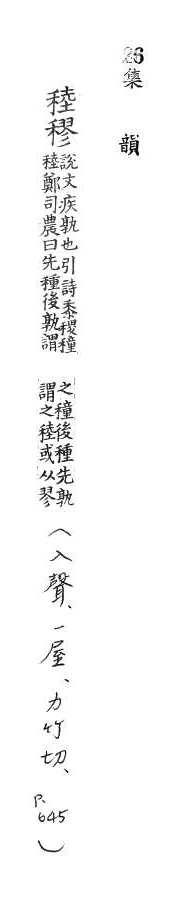 26集 韻
稑穋
說文疾孰也引詩黍稷穜
稑鄭司農曰先種後孰謂
之穜後種先孰
謂之稑或从翏
(入聲、一屋、力竹切、P.645)